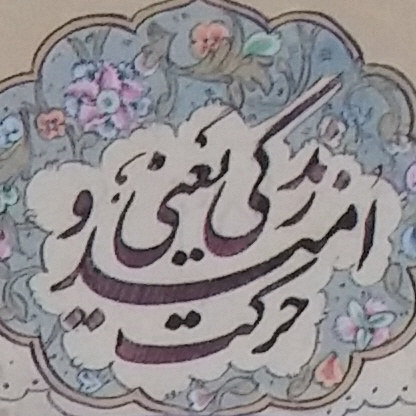 زندگی یعنی
امید و
حرکت